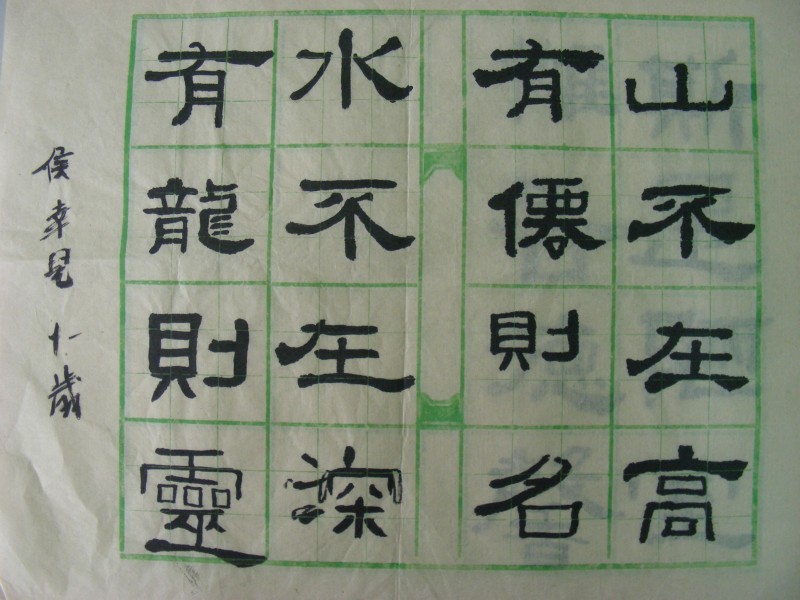 山不在高
有僊則名
水不在深
有龍則靈
侯幸兒 十一歲